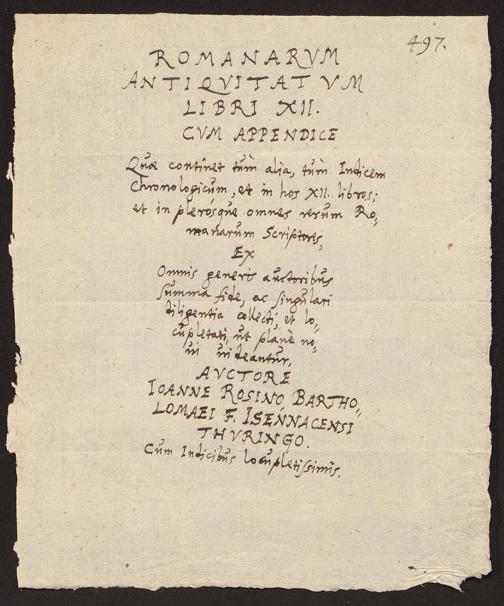 497.
ROMANARVM
ANTIQVITATVM
LIBRI XII.
CVM APPENDICE
Quæ continet tùm alia, tùm Indicem
Chronologicum, et in hos XII. libros;
et in plerósque omnes rerum Ro,,
manarum Scriptores,
Ex
Omnis generis auctoribus
summa fide, ac singulari
diligentia collecti, et lo,,
cupletati, ut planè no,,
ui uideantur,
AVCTORE
IOANNE ROSINO BARTHO,,
LOMAEI F. ISENNACENSI
THVRINGO.
Cum Indicibus locupletissimis.